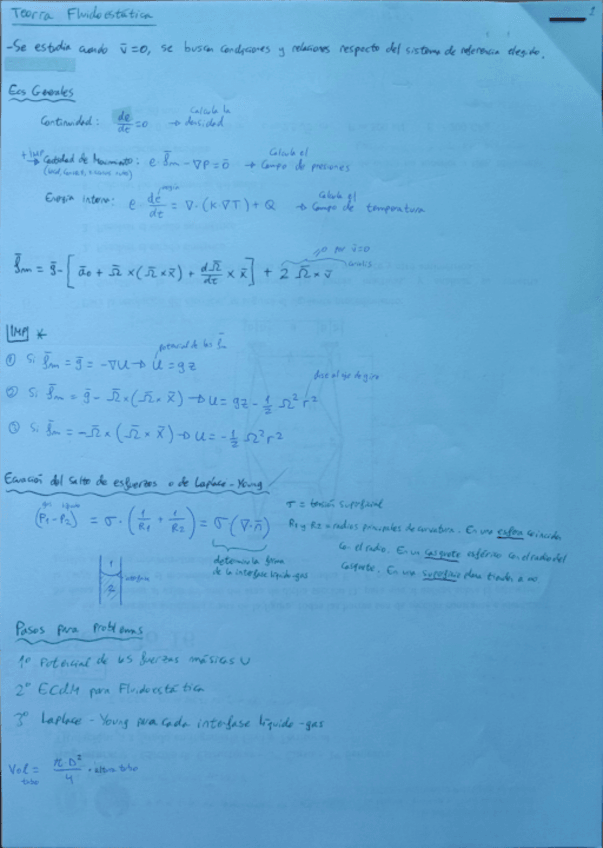 Teoría Fluidoestática
1
- Se estudia cuando v̄=0, se buscan condiciones y relaciones respecto del sistema de referencia elegido.
Ecs Generales
Continuidad: dρ/dt = 0 → Calcula la densidad
+ IMP → Cantidad de Movimiento: ρ f̄m - ∇P = 0̄ → Calcula el Campo de presiones
Energía interna: ρ de/dt = ∇·(K∇T) + Q → Calcula el Campo de temperatura
f̄m = ḡ - [ā0 + Ω̄ × (Ω̄ × x̄) + dΩ̄/dt × x̄] + 2 Ω̄ × v̄
0 por v̄=0
IMP *
potencial de las f̄m
① Si f̄m = ḡ = -∇U → U = gz
② Si f̄m = ḡ - Ω̄×(Ω̄×x̄) → U = gz - 1/2 Ω² r²
dist al eje de giro
③ Si f̄m = -Ω̄×(Ω̄×x̄) → U = -1/2 Ω² r²
Ecuación del Salto de esfuerzos o de Laplace-Young
gas líquido
(P1 - P2) = σ · (1/R1 + 1/R2) = σ(∇·n̄)
determina la forma
de la interfase líquido-gas
σ = tensión superficial
R1 y R2 = radios principales de curvatura. En una esfera coinciden
con el radio. En un casquete esférico con el radio del
casquete. En una superficie plana tienden a ∞
1
2
Pasos para Problemas
1º Potencial de las fuerzas másicas U
2º ECdM para Fluidoestática
3º Laplace-Young para cada interfase líquido-gas
Vol tubo = πD²/4 · altura tubo